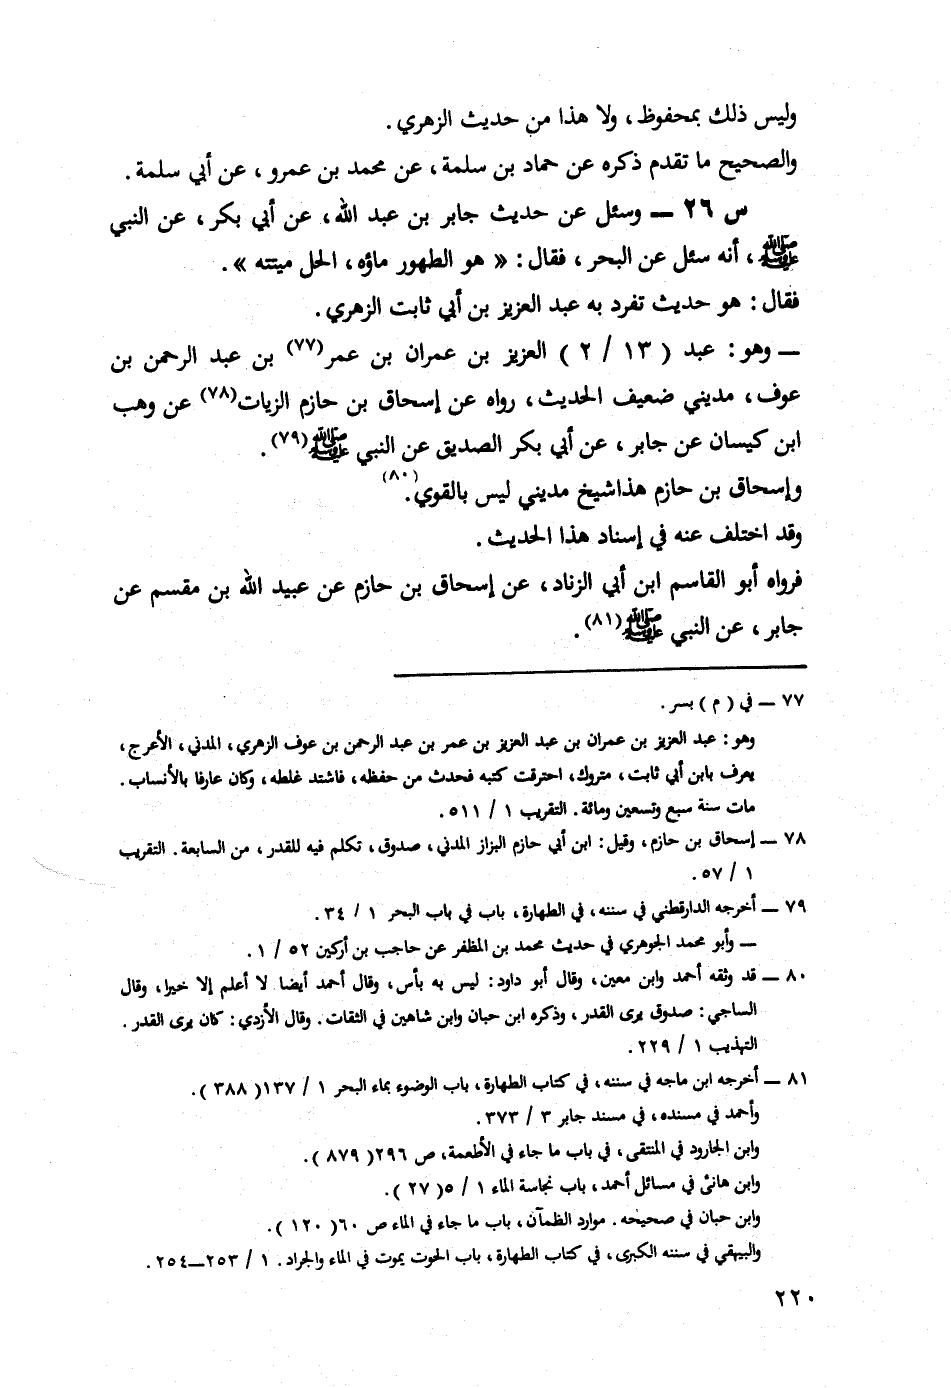 وليس ذلك بمحفوظ ، ولا هذا من حديث الزهري .
والصحيح ما تقدم ذكره عن حماد بن سلمة ، عن محمد بن عمرو ، عن أبي سلمة .
س ٢٦ — وسئل عن حديث جابر بن عبد الله ، عن أبي بكر ، عن النبي
ﷺ ، أنه سئل عن البحر ، فقال : « هو الطهور ماؤه ، الحل ميتته » .
فقال : هو حديث تفرد به عبد العزيز بن أبي ثابت الزهري .
— وهو : عبد ( ١٣ / ٢ ) العزيز بن عمران بن عمر(٧٧) بن عبد الرحمن بن
عوف ، مديني ضعيف الحديث ، رواه عن إسحاق بن حازم الزيات(٧٨) عن وهب
ابن كيسان عن جابر ، عن أبي بكر الصديق عن النبي ﷺ(٧٩) .
وإسحاق بن حازم هذاشيخ مديني ليس بالقوي(٨٠).
وقد اختلف عنه في إسناد هذا الحديث .
فرواه أبو القاسم ابن أبي الزناد ، عن إسحاق بن حازم عن عبيد الله بن مقسم عن
جابر ، عن النبي ﷺ(٨١) .
٧٧ — في ( م ) بسر .
وهو : عبد العزيز بن عمران بن عبد العزيز بن عمر بن عبد الرحمن بن عوف الزهري ، المدني ، الأعرج ،
يعرف بابن أبي ثابت ، متروك ، احترقت كتبه فحدث من حفظه ، فاشتد غلطه ، وكان عارفا بالأنساب .
مات سنة سبع وتسعين ومائة . التقريب ١ / ٥١١ .
٧٨ — إسحاق بن حازم ، وقيل : ابن أبي حازم البزاز المدني ، صدوق ، تكلم فيه للقدر ، من السابعة . التقريب
١ / ٥٧ .
٧٩ — أخرجه الدارقطني في سننه ، في الطهارة ، باب في باب البحر ١ / ٣٤ .
— وأبو محمد الجوهري في حديث محمد بن المظفر عن حاجب بن أركين ٥٢ / ١ .
٨٠ — قد وثقه أحمد وابن معين ، وقال أبو داود : ليس به بأس ، وقال أحمد أيضا لا أعلم إلا خيرا ، وقال
الساجي : صدوق يرى القدر ، وذكره ابن حبان وابن شاهين في الثقات . وقال الأزدي : كان يرى القدر .
التهذيب ١ / ٢٢٩ .
٨١ — أخرجه ابن ماجه في سننه ، في كتاب الطهارة ، باب الوضوء بماء البحر ١ / ١٣٧( ٣٨٨ ) .
وأحمد في مسنده ، في مسند جابر ٣ / ٣٧٣ .
وابن الجارود في المنتقى ، في باب ما جاء في الأطعمة ، ص ٢٩٦( ٨٧٩ ) .
وابن هانئ في مسائل أحمد ، باب نجاسة الماء ١ / ٥( ٢٧ ) .
وابن حبان في صحيحه . موارد الظمآن ، باب ما جاء في الماء ص ٦٠( ١٢٠ ) .
والبيهقي في سننه الكبرى ، في كتاب الطهارة ، باب الحوت يموت في الماء والجراد . ١ / ٢٥٣—٢٥٤ .
٢٢٠